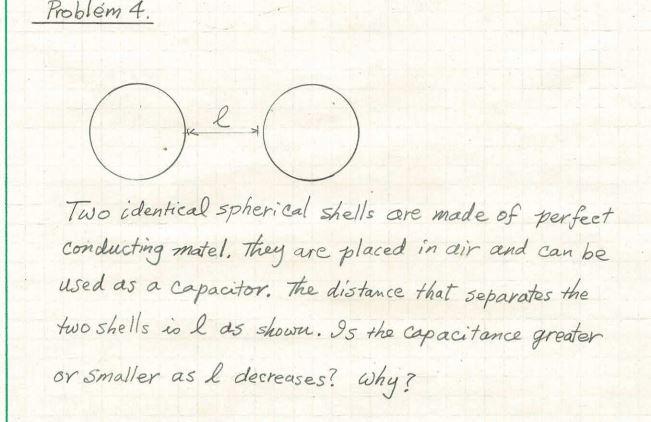 Problem 4.
l
Two identical spherical shells are made of perfect
conducting matel. They are placed in air and can be
used as a capacitor. The distance that separates the
two shells is l as shown. Is the capacitance greater
or smaller as l decreases? Why?